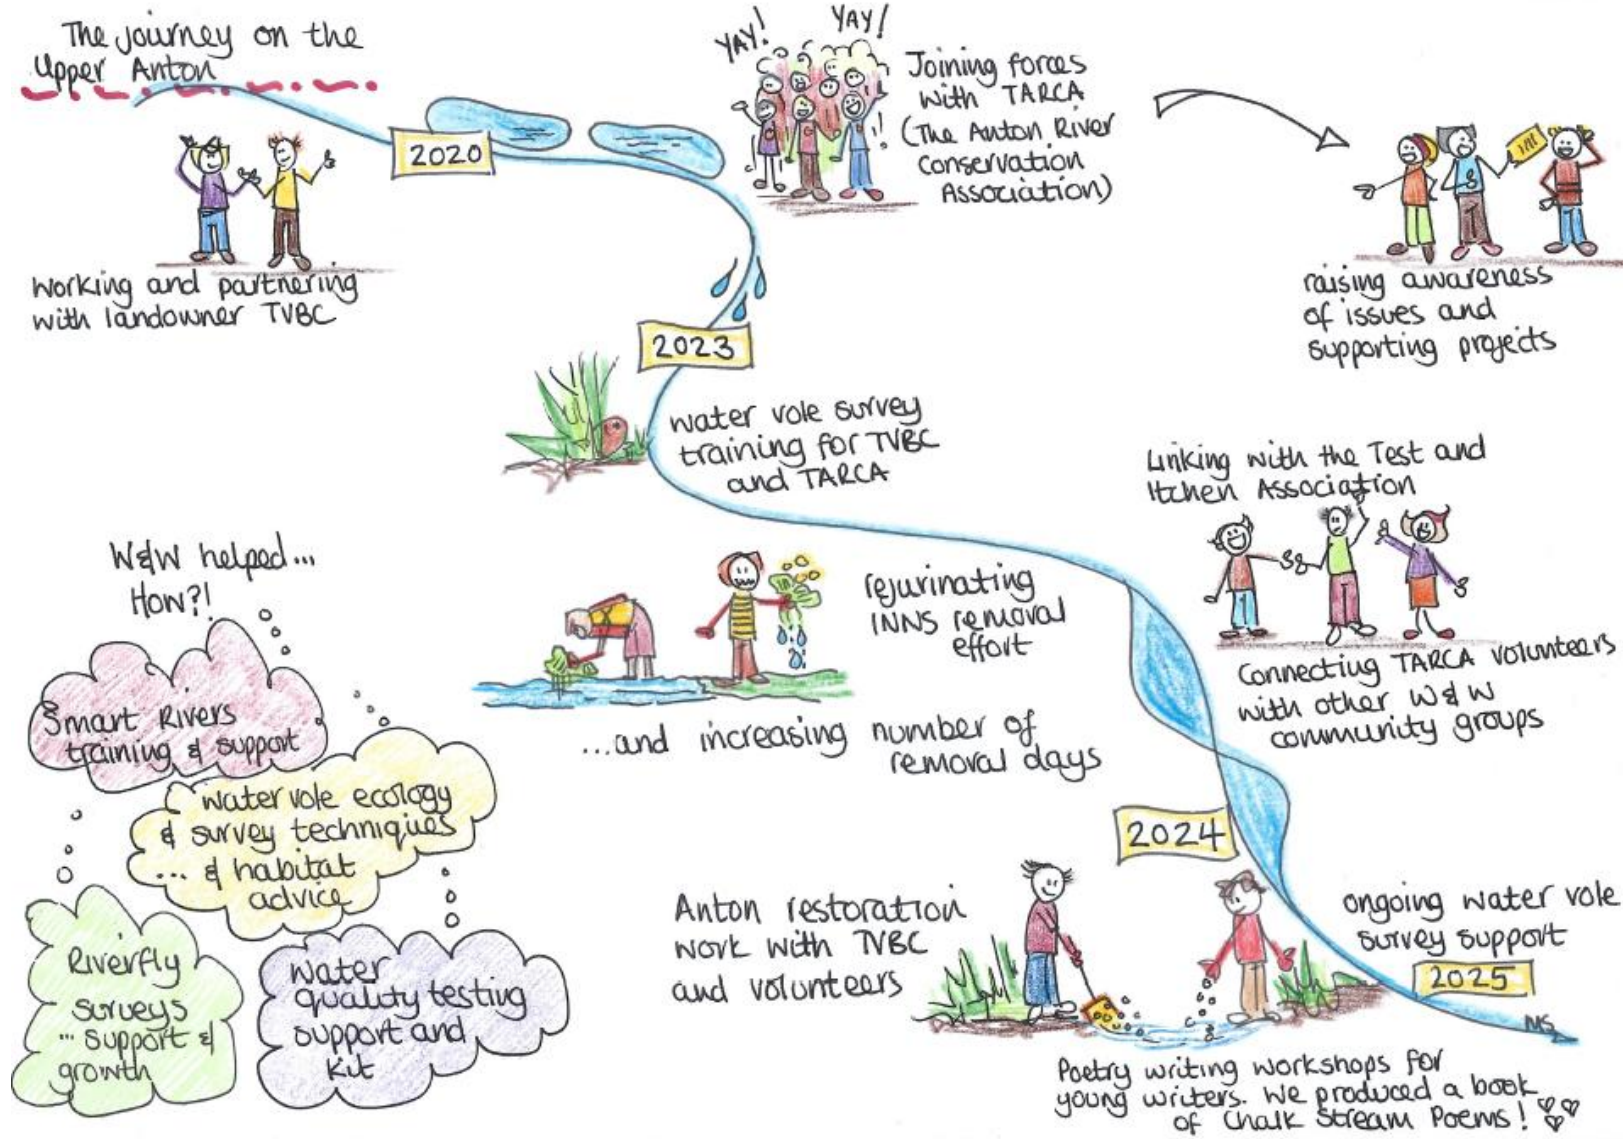 The journey on the
Upper Anton
2020
working and partnering
with landowner TVBC
YAY!
YAY!
Joining forces
with TARCA
(The Anton River
Conservation
Association)
raising awareness
of issues and
supporting projects
2023
water vole survey
training for TVBC
and TARCA
Linking with the Test and
Itchen Association
Connecting TARCA volunteers
with other W&W
community groups
rejuvinating
INNS removal
effort
...and increasing number of
removal days
W&W helped...
How?!
Smart Rivers
training & support
water vole ecology
& survey techniques
... & habitat
advice
Riverfly
surveys
... support &
growth
water
quality testing
support and
kit
2024
Anton restoration
work with TVBC
and volunteers
ongoing water vole
survey support
2025
MS
Poetry writing workshops for
young writers. We produced a book
of Chalk Stream Poems!